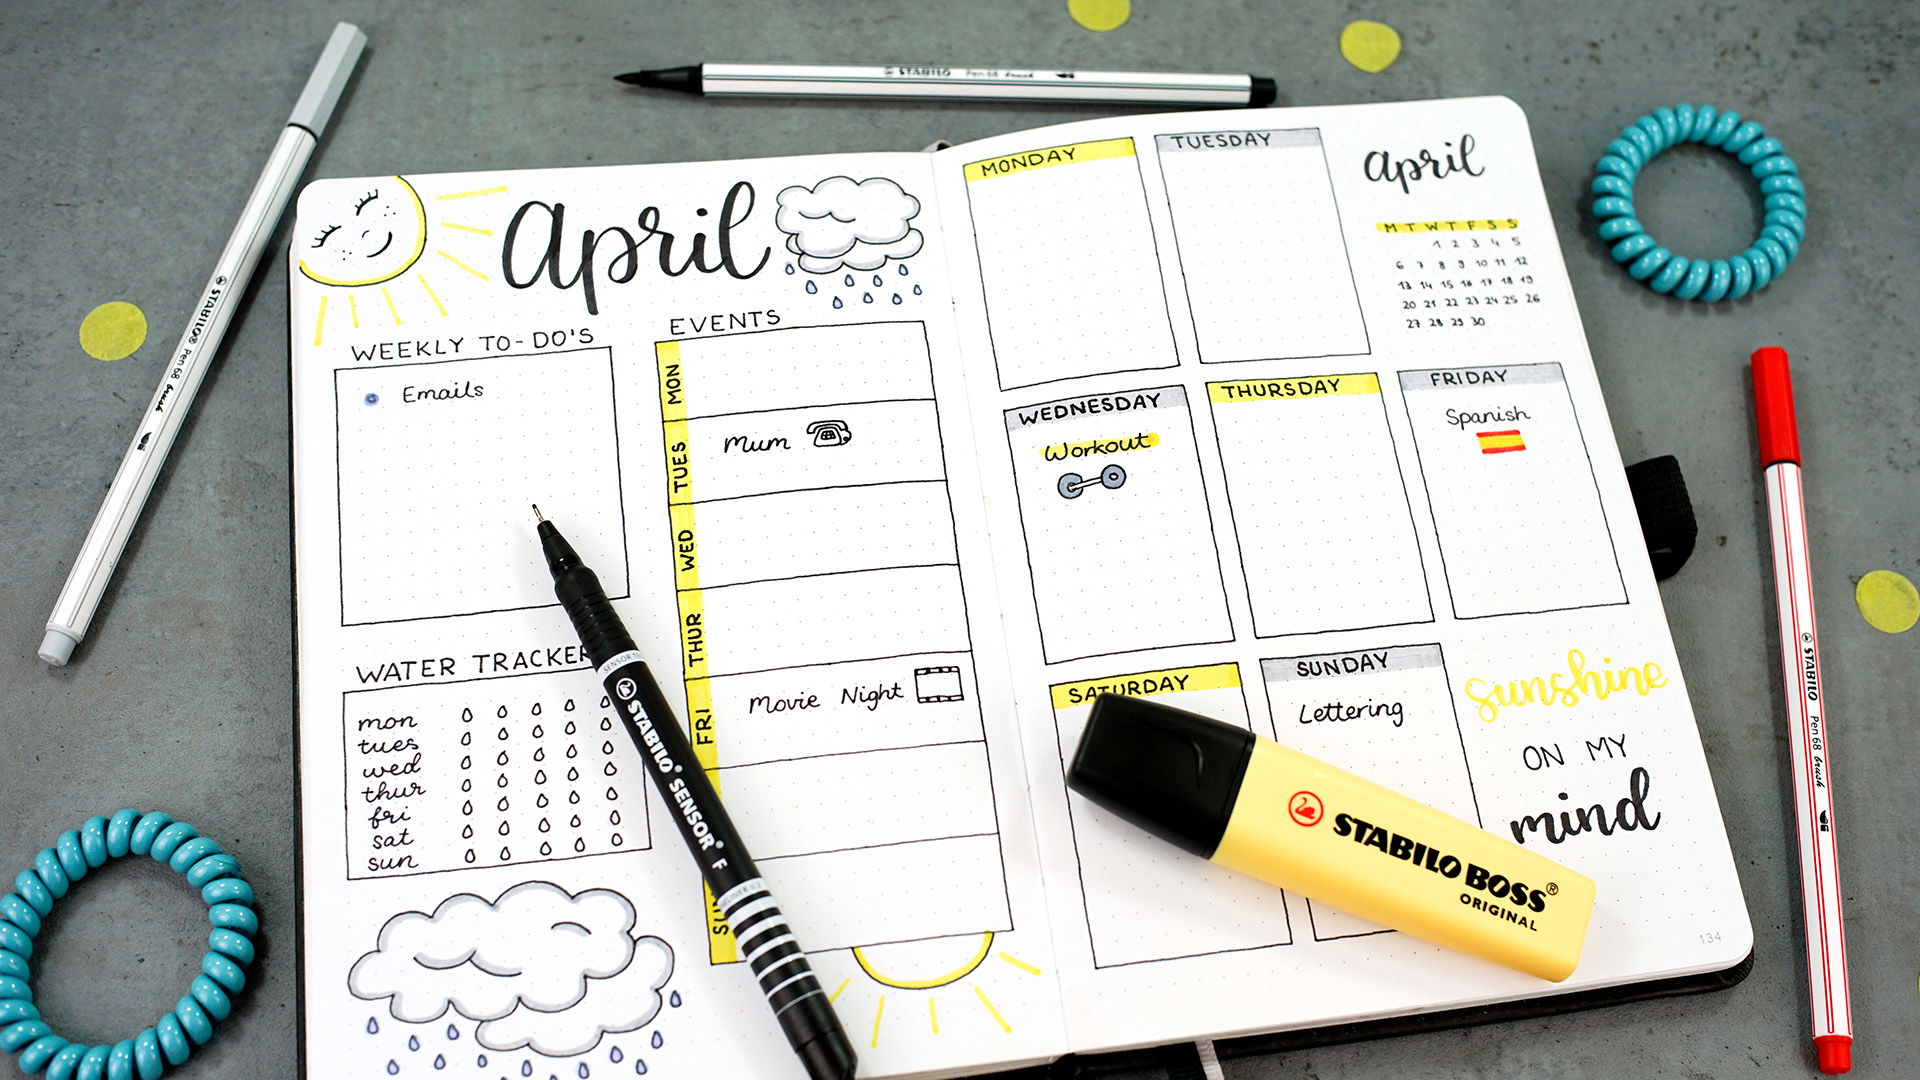 april
WEEKLY TO-DO'S
Emails
EVENTS
MON
TUES
Mum
WED
THUR
FRI
Movie Night
WATER TRACKER
mon
tues
wed
thur
fri
sat
sun
MONDAY
TUESDAY
april
M T W T F S S
1 2 3 4 5
6 7 8 9 10 11 12
13 14 15 16 17 18 19
20 21 22 23 24 25 26
27 28 29 30
WEDNESDAY
Workout
THURSDAY
FRIDAY
Spanish
SATURDAY
SUNDAY
Lettering
sunshine
ON MY
mind
134
STABILO BOSS®
ORIGINAL
STABILO® SENSOR® F
STABILO® Pen 68 brush
STABILO Pen 68 brush
STABILO Pen 68 brush